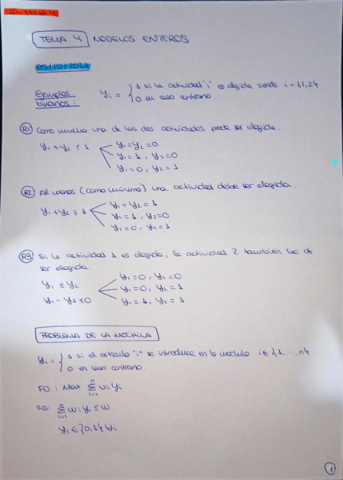 TEMA 4 MODELOS ENTEROS
05/10/2021
Ejemplos binarios: yi = { 1 si la actividad "i" es elegida siendo i = {1,2}
0 en caso contrario
R1) Como mucho una de las dos actividades puede ser elegida.
y1 + y2 ≤ 1
y1 = y2 = 0
y1 = 1, y2 = 0
y1 = 0, y2 = 1
R2) Al menos (como mínimo) una actividad debe ser elegida.
y1 + y2 ≥ 1
y1 = y2 = 1
y1 = 1, y2 = 0
y1 = 0, y2 = 1
R3) Si la actividad 1 es elegida, la actividad 2 también ha de
ser elegida.
y1 ≤ y2
y1 - y2 ≤ 0
y1 = 0, y2 = 0
y1 = 0, y2 = 1
y1 = 1, y2 = 1
PROBLEMA DE LA MOCHILA
yi = { 1 si el artículo "i" se introduce en la mochila i ∈ {1, ..., n}
0 en caso contrario
FO: Max Σ vi yi
sa: Σ wi yi ≤ W
yi ∈ {0,1} ∀i
1